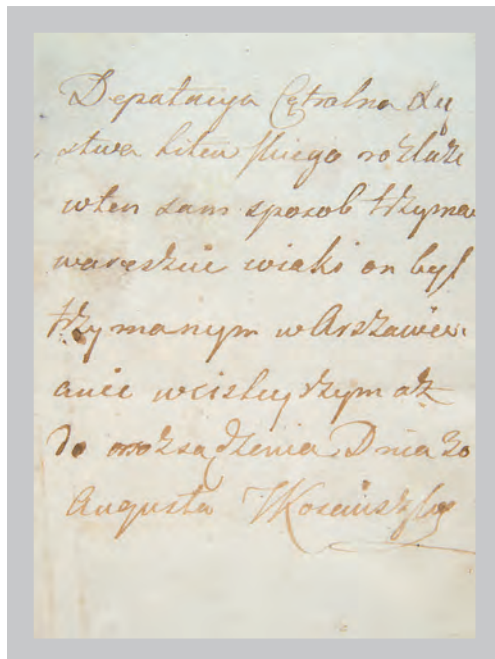 Deputacya Cętralna Xię
stwa Litewskiego rozkaże
wten sam sposob trzymac
waręszcie wiaki on był
trzymanym wArszawie
anie wcisley szym aż
do orozsądzenia Dnia 30
Augusta TKosciuszko